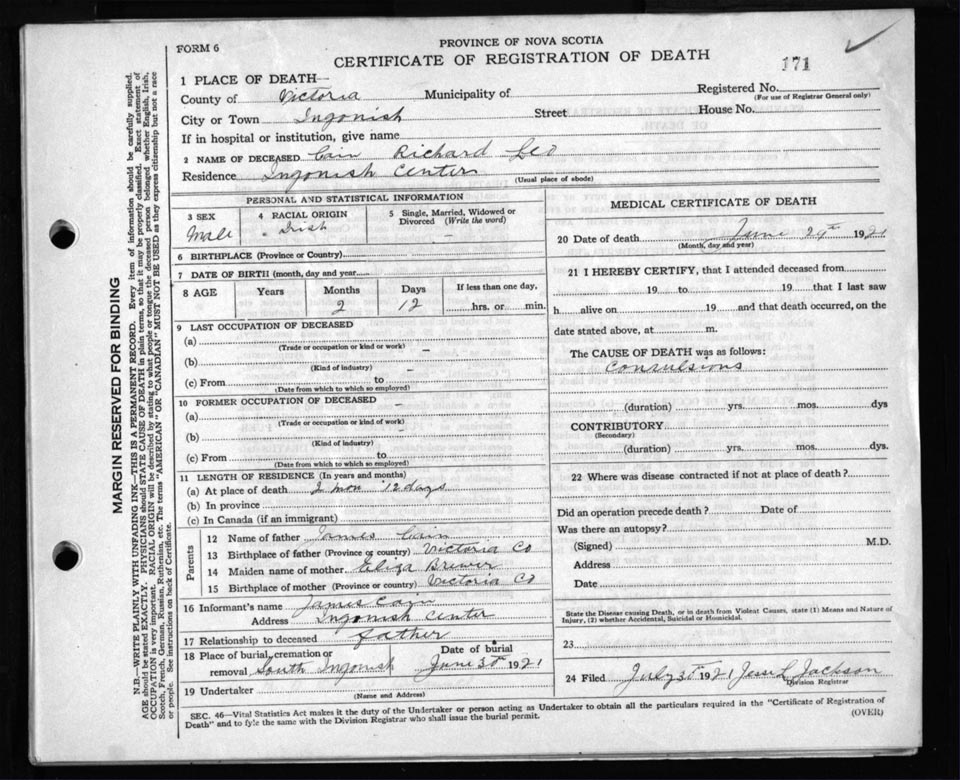 FORM 6
PROVINCE OF NOVA SCOTIA
CERTIFICATE OF REGISTRATION OF DEATH
171
1 PLACE OF DEATH—
County of Victoria Municipality of
Registered No.
(For use of Registrar General only)
City or Town Ingonish Street House No.
If in hospital or institution, give name
2 NAME OF DECEASED Cain Richard Leo
Residence Ingonish Center
(Usual place of abode)
PERSONAL AND STATISTICAL INFORMATION
3 SEX
Male
4 RACIAL ORIGIN
Irish
5 Single, Married, Widowed or Divorced (Write the word)
–
6 BIRTHPLACE (Province or Country)
7 DATE OF BIRTH (month, day and year)
8 AGE Years Months Days If less than one day,
2 12 hrs. or min.
9 LAST OCCUPATION OF DECEASED
(a)
(Trade or occupation or kind of work) –
(b)
(Kind of industry) –
(c) From to
(Date from which to which so employed)
10 FORMER OCCUPATION OF DECEASED –
(a)
(Trade or occupation or kind of work) –
(b)
(Kind of industry)
(c) From to
(Date from which to which so employed)
11 LENGTH OF RESIDENCE (In years and months)
(a) At place of death 2 mon 12 days
(b) In province
(c) In Canada (if an immigrant)
Parents
12 Name of father James Cain
13 Birthplace of father (Province or country) Victoria Co
14 Maiden name of mother Eliza Brewer
15 Birthplace of mother (Province or country) Victoria Co
16 Informant's name James Cain
Address Ingonish Center
17 Relationship to deceased father
18 Place of burial, cremation or removal South Ingonish
Date of burial
June 30th 1921
19 Undertaker
(Name and Address)
MEDICAL CERTIFICATE OF DEATH
20 Date of death June 29th 1921
(Month, day and year)
21 I HEREBY CERTIFY, that I attended deceased from
19 to 19 that I last saw
h alive on 19 and that death occurred, on the
date stated above, at m.
The CAUSE OF DEATH was as follows:
Convulsions
(duration) yrs. mos. dys
CONTRIBUTORY
(Secondary)
(duration) yrs. mos. dys.
22 Where was disease contracted if not at place of death?
Did an operation precede death? Date of
Was there an autopsy?
(Signed) M.D.
Address
Date
State the Disease causing Death, or in death from Violent Causes, state (1) Means and Nature of
Injury, (2) whether Accidental, Suicidal or Homicidal.
23
24 Filed July 30th 1921 Jessie L Jackson
Division Registrar
SEC. 46—Vital Statistics Act makes it the duty of the Undertaker or person acting as Undertaker to obtain all the particulars required in the "Certificate of Registration of
Death" and to fyle the same with the Division Registrar who shall issue the burial permit.
(OVER)
MARGIN RESERVED FOR BINDING
N.B.—WRITE PLAINLY WITH UNFADING INK—THIS IS A PERMANENT RECORD. Every item of information should be carefully supplied.
AGE should be stated EXACTLY. PHYSICIANS should STATE CAUSE OF DEATH in plain terms, so that it may be properly classified. Exact statement of
OCCUPATION is very important. RACIAL ORIGIN will be described by stating to what people or tongue the deceased person belonged, whether English, Irish,
Scotch, French, German, Russian, Ruthenian, etc. The terms "AMERICAN" OR "CANADIAN" MUST NOT BE USED as they express citizenship but not a race
or people. See instructions on back of Certificate.